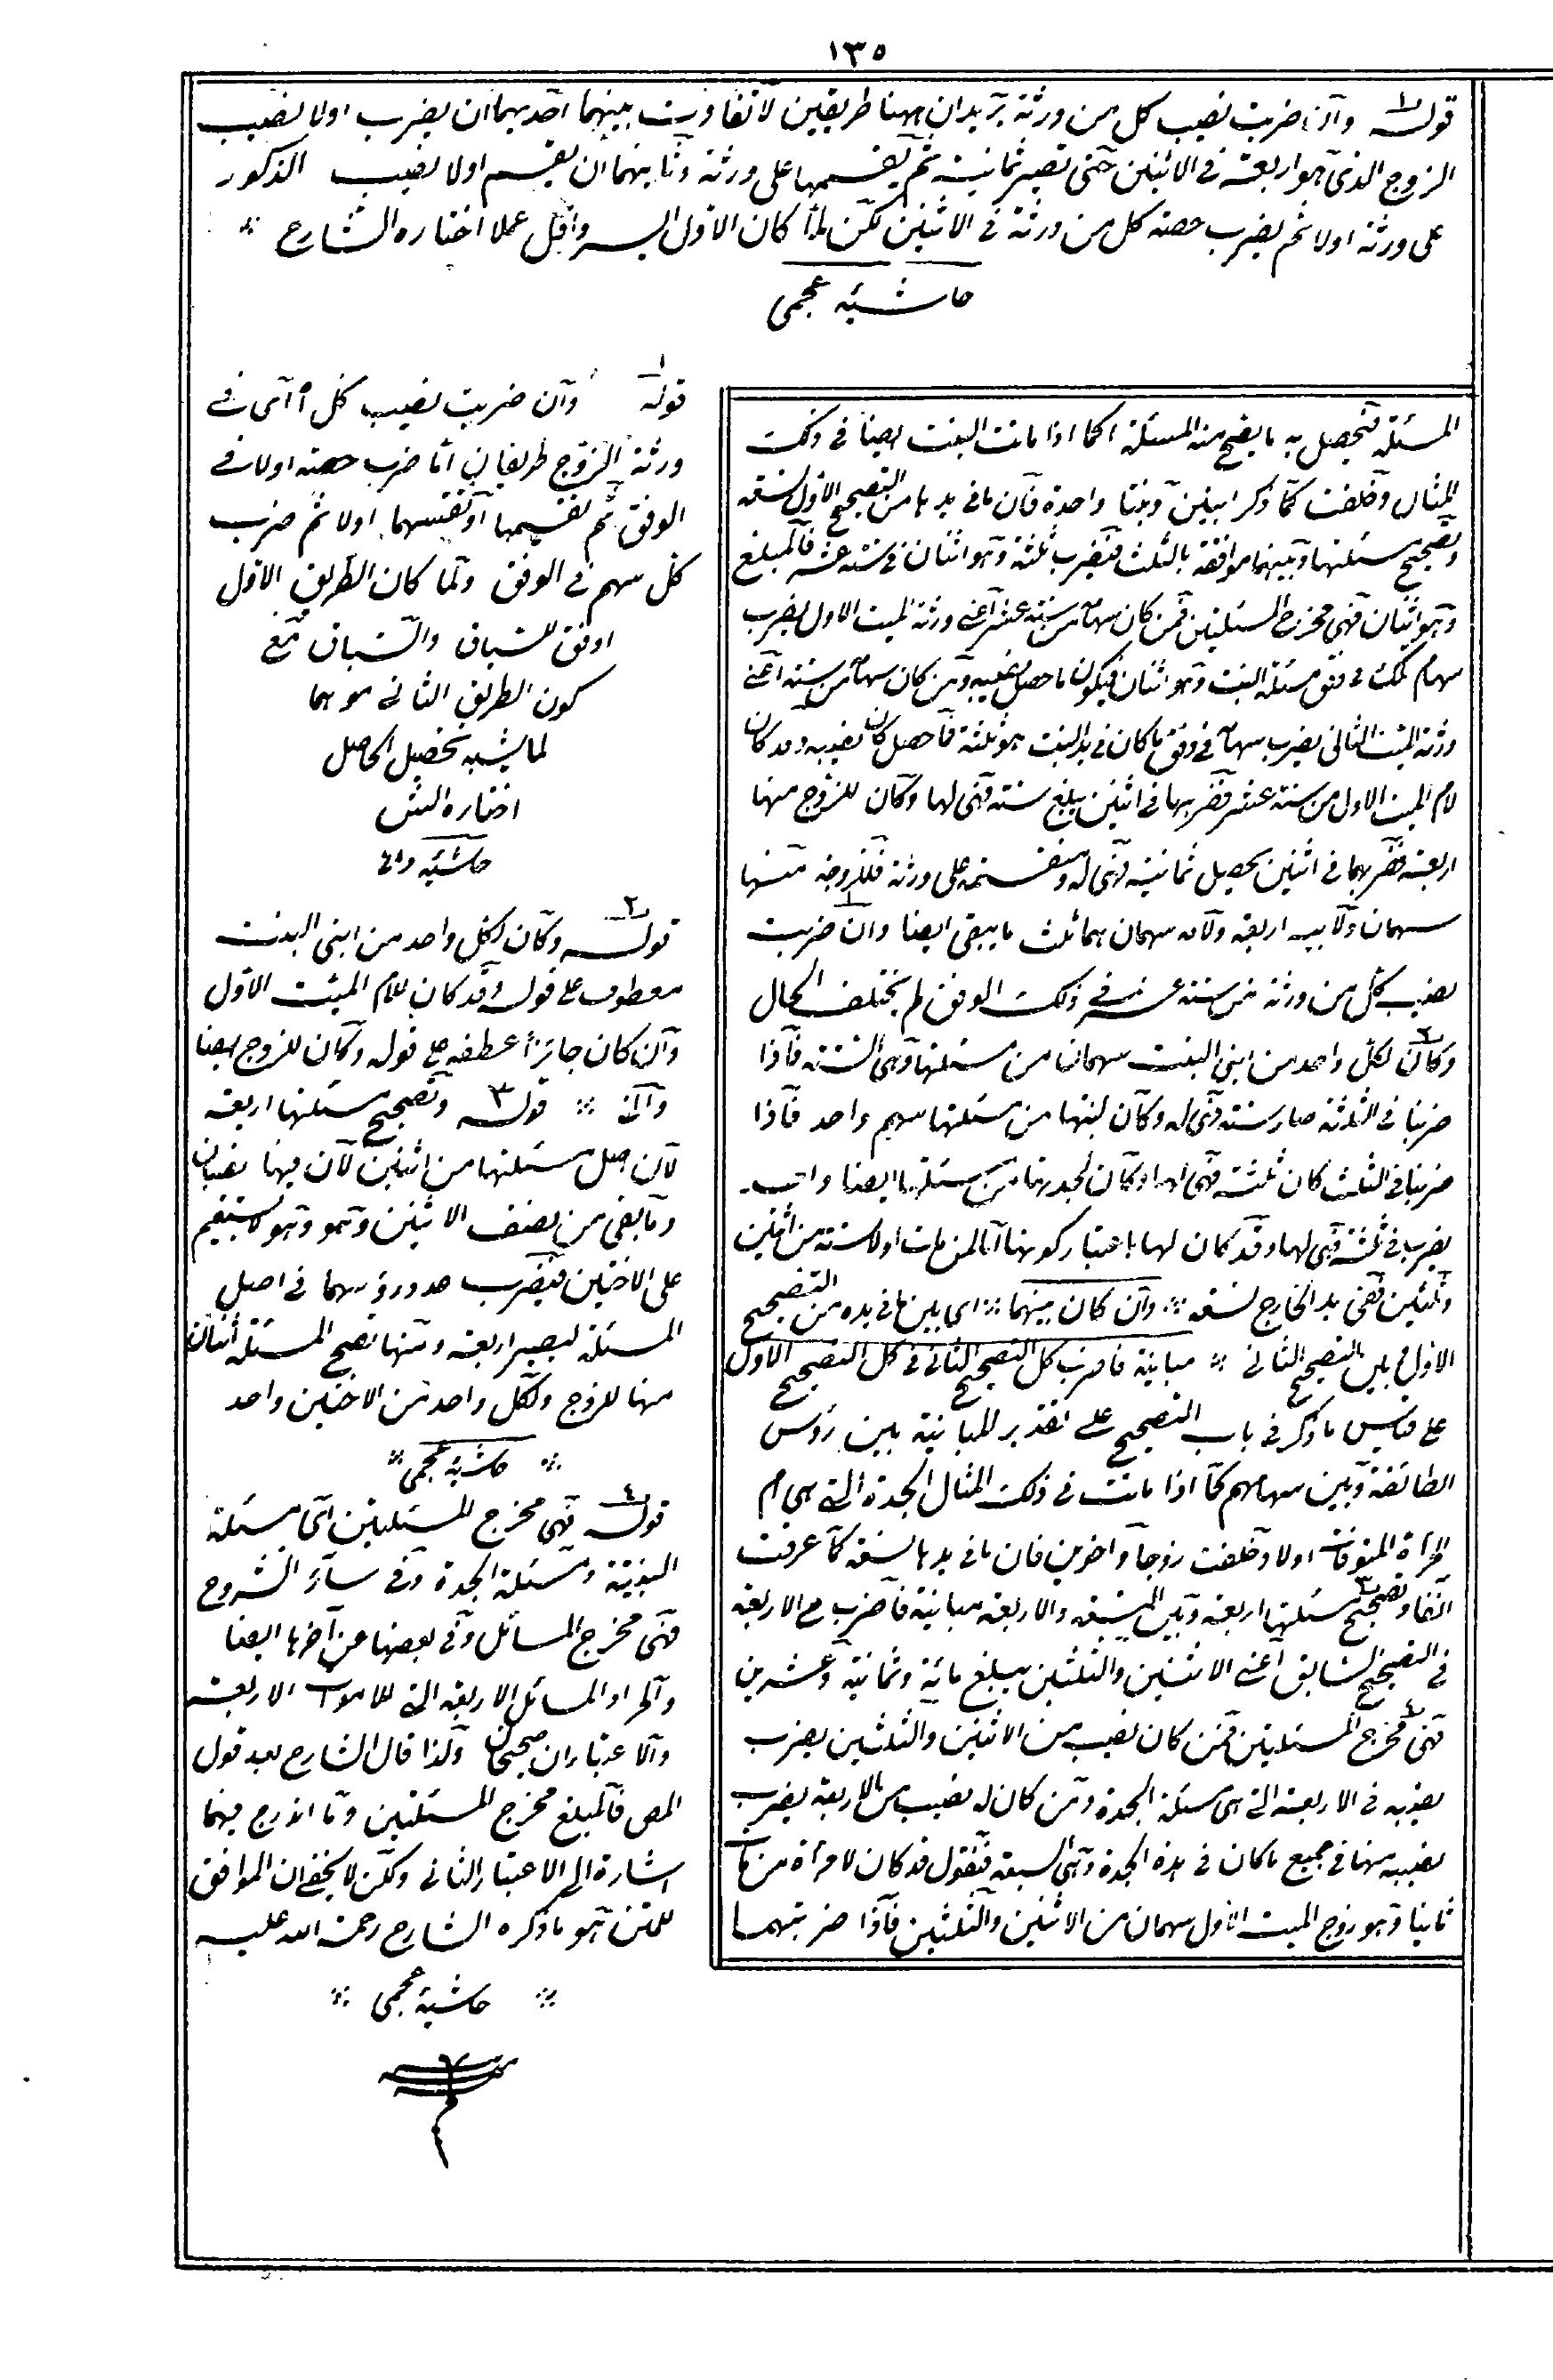 ١٣٥
قوله وان ضربت نصيب كل من ورثته يريد ان ههنا طريقين لا تفاوت بينهما احديهما ان يضرب اولا نصيب
الزوج الذى هو اربعة فى الاثنين حتى تصير ثمانية ثم يقسمها على ورثته وثانيهما ان يقسم اولا نصيب المذكور
على ورثته اولا ثم يضرب حصة كل من ورثته فى الاثنين لكن لما كان الاول ايسر واقل عملا اختاره الشارح
حاشيه عجمى
المسئلة فيحصل به ما يصح منه المسئلة كما اذا ماتت البنت ايضا فى ذلك
المثال وخلفت كما ذكر ابنين وبنتا واحدة فان ما فى يدها من التصحيح الاول تسعة
وتصحيح مسئلتها وبينهما موافقة بالثلث فيضرب ثلثه وهو اثنان فى ستة عشر فالمبلغ
وهو اثنان فهى مخرج المسئلتين فمن كان سهامه من ستة عشر اعنى ورثة الميت الاول يضرب
سهام تلك فى وفق مسئلة البنت وهو اثنان فيكون ما حصل نصيبه ومن كان سهامه من ستة اعنى
ورثة الميت الثانى يضرب سهامه فى وفق ما كان فى يد البنت هو ثلثة فما حصل كان نصيبه وقد كان
لام الميت الاول من ستة عشر فضربها فى اثنين يبلغ ستة فهى لها وكان للزوج منها
اربعة فضربها فى اثنين يحصل ثمانية فهى له ومنقسمة على ورثته فللزوجة منها
سهمان ولابيه اربعة ولامه سهمان هما ثلث ما يبقى ايضا وان ضربت
نصيب كل من ورثته من ستة عشر فى ذلك الوفق لم يختلف الحال
وكان لكل واحد من ابنى البنت سهمان من مسئلتها وهى الستة فاذا
ضربنا فى الثلثة صار ستة فهى له وكان لبنتها من مسئلتها سهم واحد فاذا
ضربنا فى الثلث كان ثلثة فهى لها وكان لجدتها من مسئلتها ايضا واحد
يضرب فى ثلثة فهى لها وقد كان لها باعتبار كونها اما لمن مات اولا ستة من اثنين
وثلثين ففى يد الخارج تسعة وان كان بينهما اى بين ما فى يده من التصحيح
الاول وبين التصحيح الثانى مباينة فاضرب كل التصحيح الثانى فى كل التصحيح الاول
على قياس ما ذكر فى باب التصحيح على تقدير المباينة بين رؤس
الطائفة وبين سهامهم كما اذا ماتت فى ذلك المثال الجدة التى هى ام
المرأة المتوفاة اولا وخلفت زوجا واخوين فان ما فى يدها تسعة كما عرفت
آنفا وتصحيح مسئلتها اربعة وبين التسعة والاربعة مباينة فاضرب الاربعة
فى التصحيح السابق اعنى الاثنين والثلثين يبلغ مائة وثمانية وعشرين
فهى مخرج المسئلتين فمن كان نصيبه من الاثنين والثلثين يضرب
نصيبه فى الاربعة التى هى مسئلة الجدة ومن كان له نصيب من الاربعة يضرب
نصيبه منها فى جميع ما كان فى يد الجدة وهى التسعة فنقول قد كان لامرأة من مات
ثانيا وهو زوج الميت الاول سهمان من الاثنين والثلثين فاذا ضربتهما
قوله وان ضربت نصيب كل آه اى فى
ورثة الزوج طريقان اما ضرب حصته اولا فى
الوفق ثم تقسيمها او تقسيمها اولا ثم ضرب
كل سهم فى الوفق ولما كان الطريق الاول
اوفق للسباق والسياق مع
كون الطريق الثانى موهما
لما يشبه تحصيل الحاصل
اختاره الش
حاشيه
قوله وكان لكل واحد من ابنى البنت
معطوف على قوله وقد كان للام الميت الاول
وان كان جائزا عطفه على قوله وكان للزوج ايضا
قوله وتصحيح مسئلتها اربعة
لان اصل مسئلتها من اثنين لان فيها نصفان
وما بقى من نصف الاثنين وهو لا يستقيم
على الاختين فيضرب عدد رؤسهما فى اصل
المسئلة ليصير اربعة ومنها تصح المسئلة اثنان
منها للزوج ولكل واحد من الاختين واحد
حاشيه عجمى
قوله فهى مخرج المسئلتين اى مسئلة
البنتية ومسئلة الجدة وفى سائر الشروح
فهى مخرج المسائل وفى بعضها عن آخرها ايضا
والمراد المسائل الاربعة التى للاموات الاربعة
والاعتباران صحيحان ولذا قال الشارح بعد قول
المص فالمبلغ مخرج المسئلتين وما اندرج فيهما
اشارة الى الاعتبار الثانى ولكن لا يخفى ان الموافق
للمتن هو ما ذكره الشارح رحمة الله عليه
حاشية عجمى